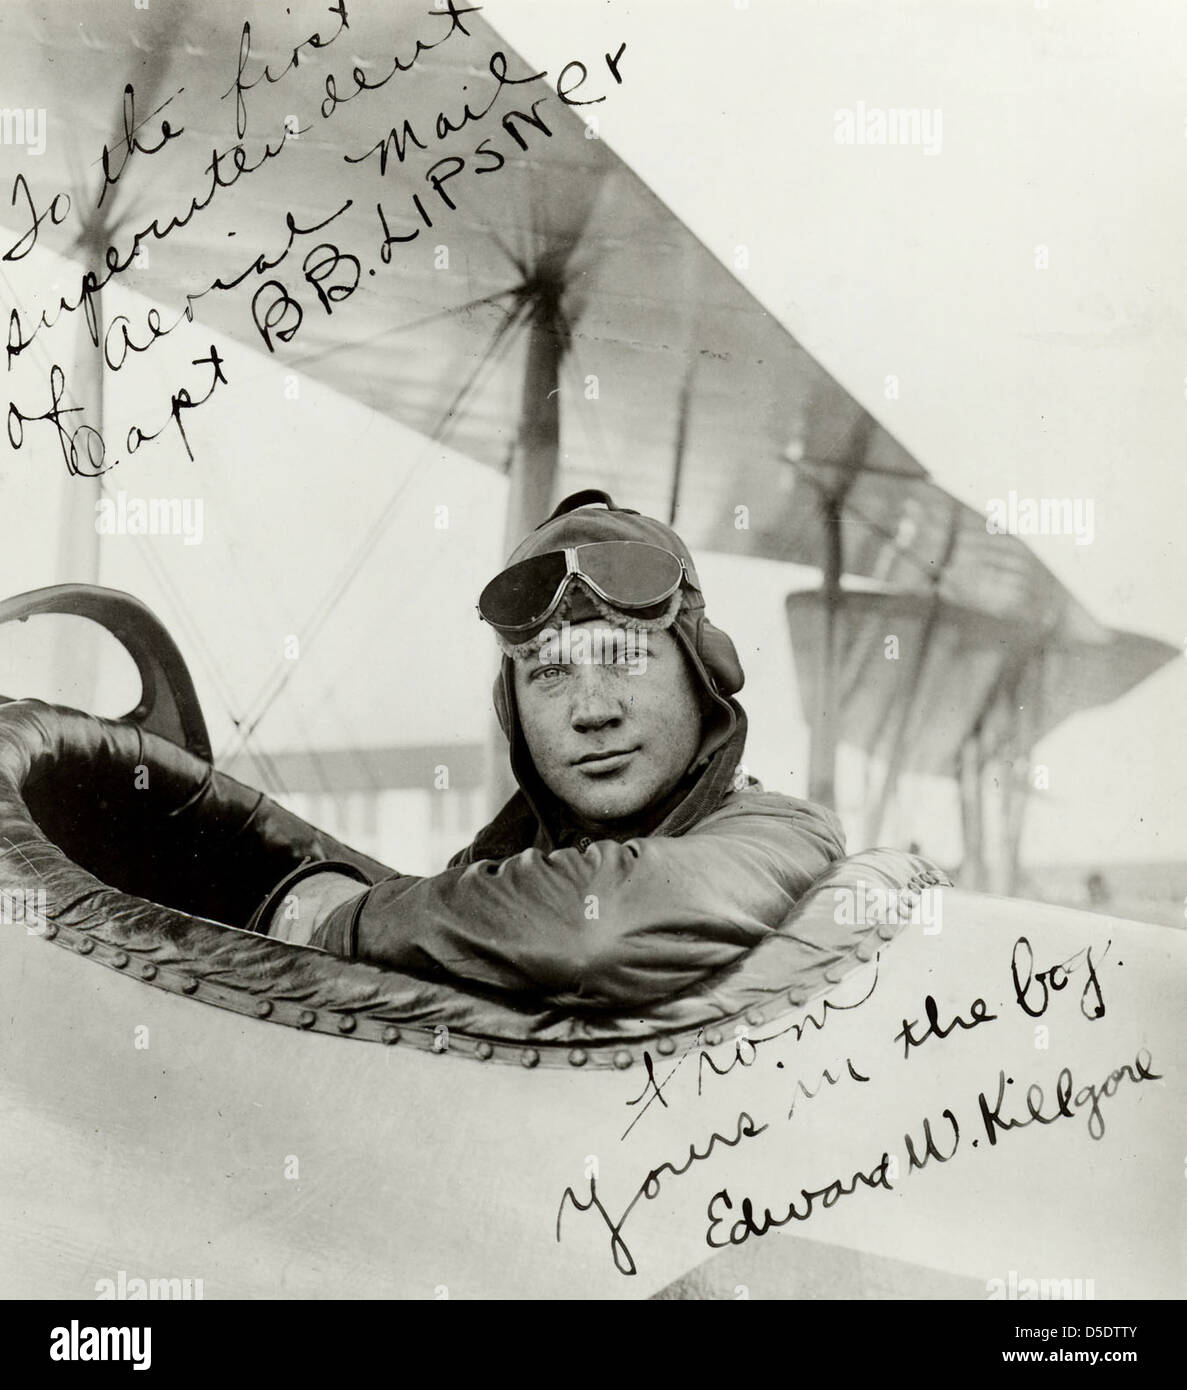 To the first
superintendent
of Aerial Mail
Capt B B. LIPSNer
from
Yours in the boy.
Edward W. Killgore
alamy
alamy
alamy
alamy
alamy
alamy
alamy
Image ID: D5DTTY
www.alamy.com